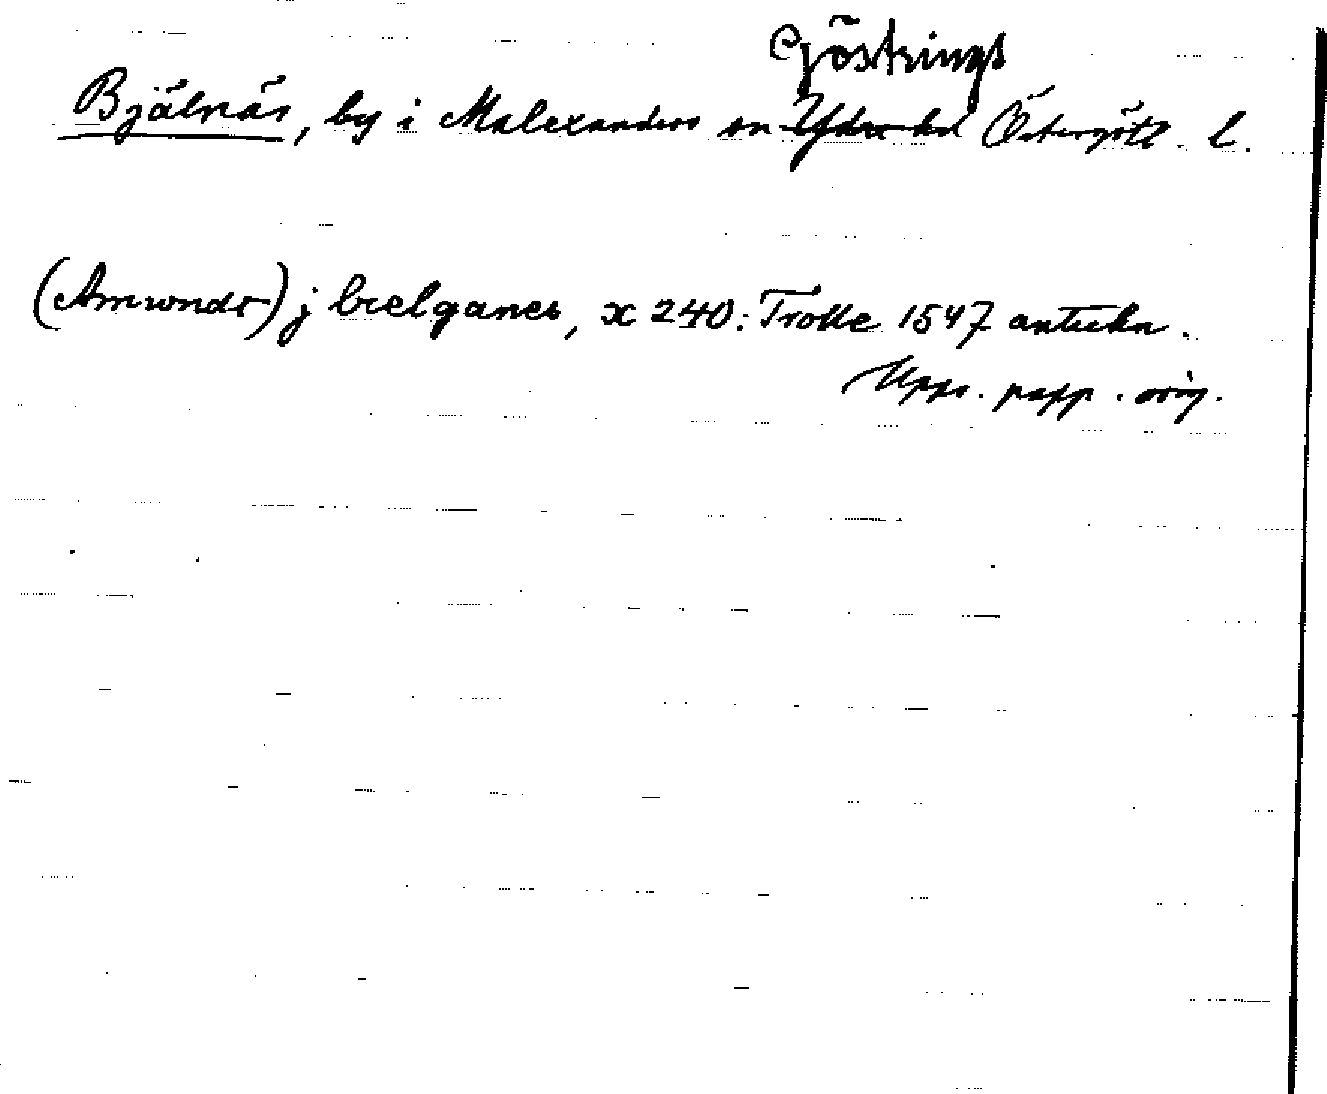 Göstrings
Bjälnäs, by i Malexanders sn Ydre hd Östergötl. l.
(Amundt) j bielganes, x 240: Trolle 1547 anteckn.
Upps. papp. orig.